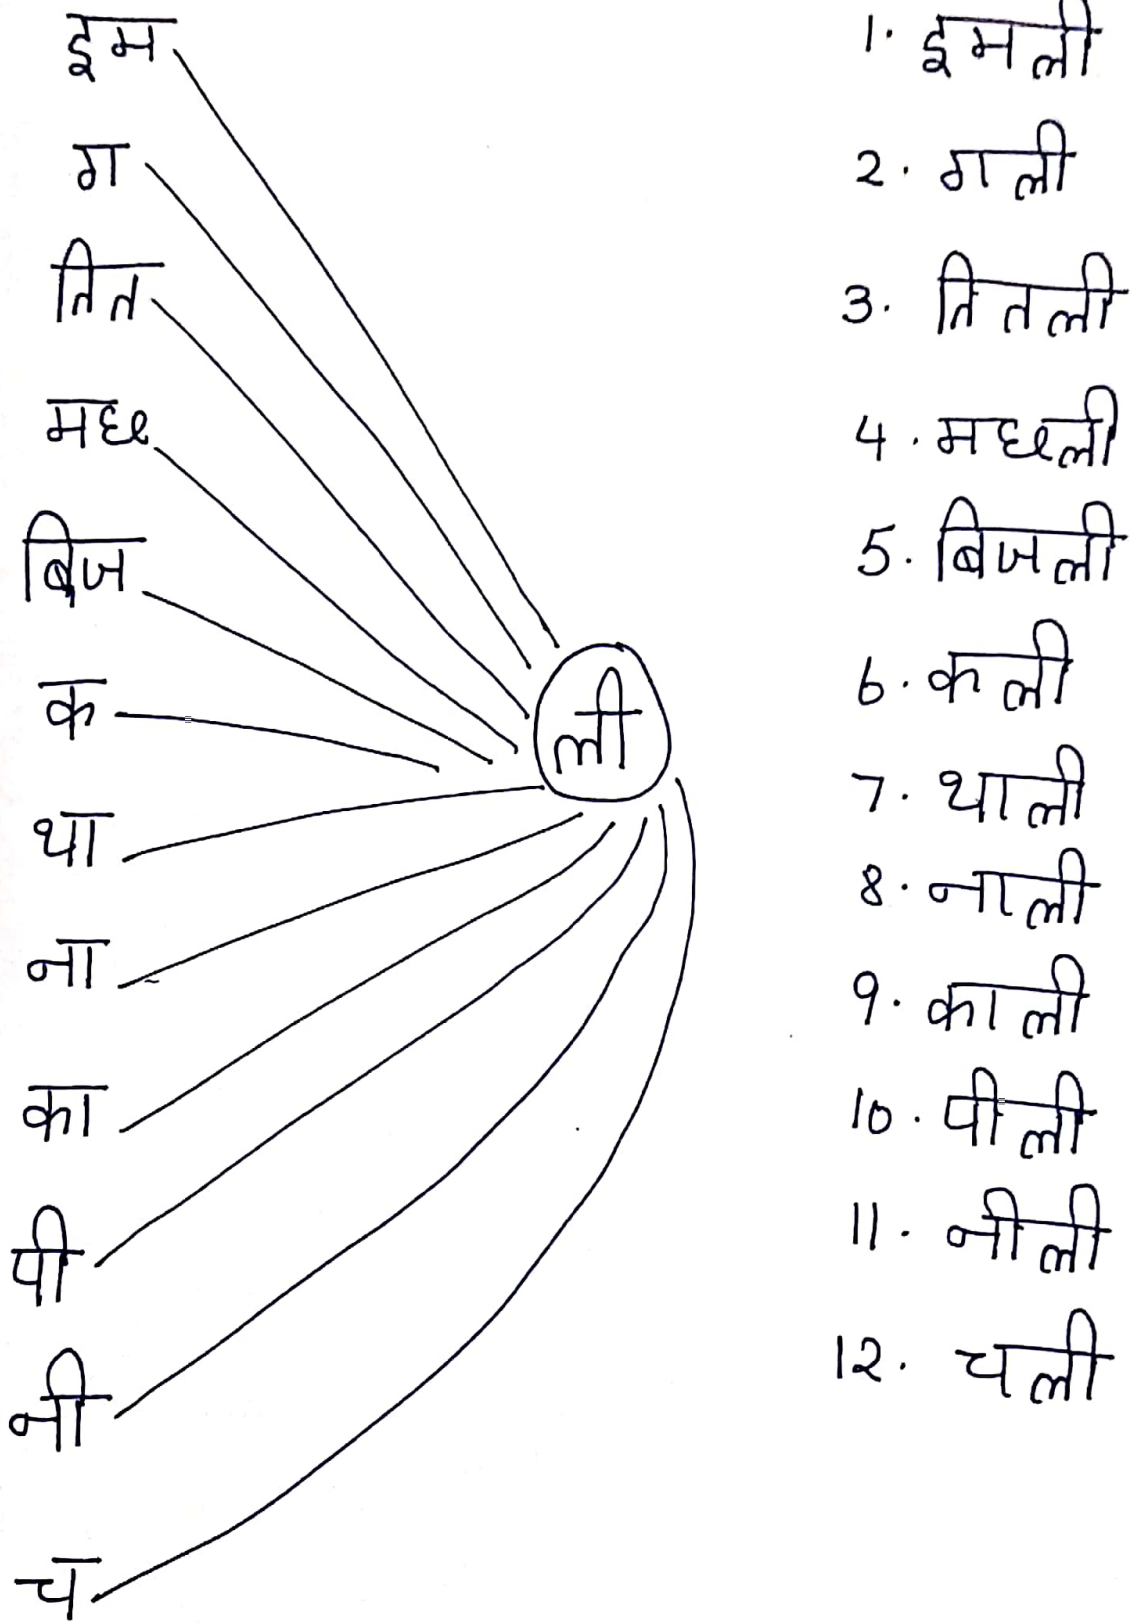 इम
ग
तित
मछ
बिज
क
था
ना
का
पी
नी
च
ली
1. इमली
2. गली
3. तितली
4. मछली
5. बिजली
6. कली
7. थाली
8. नाली
9. काली
10. पीली
11. नीली
12. चली